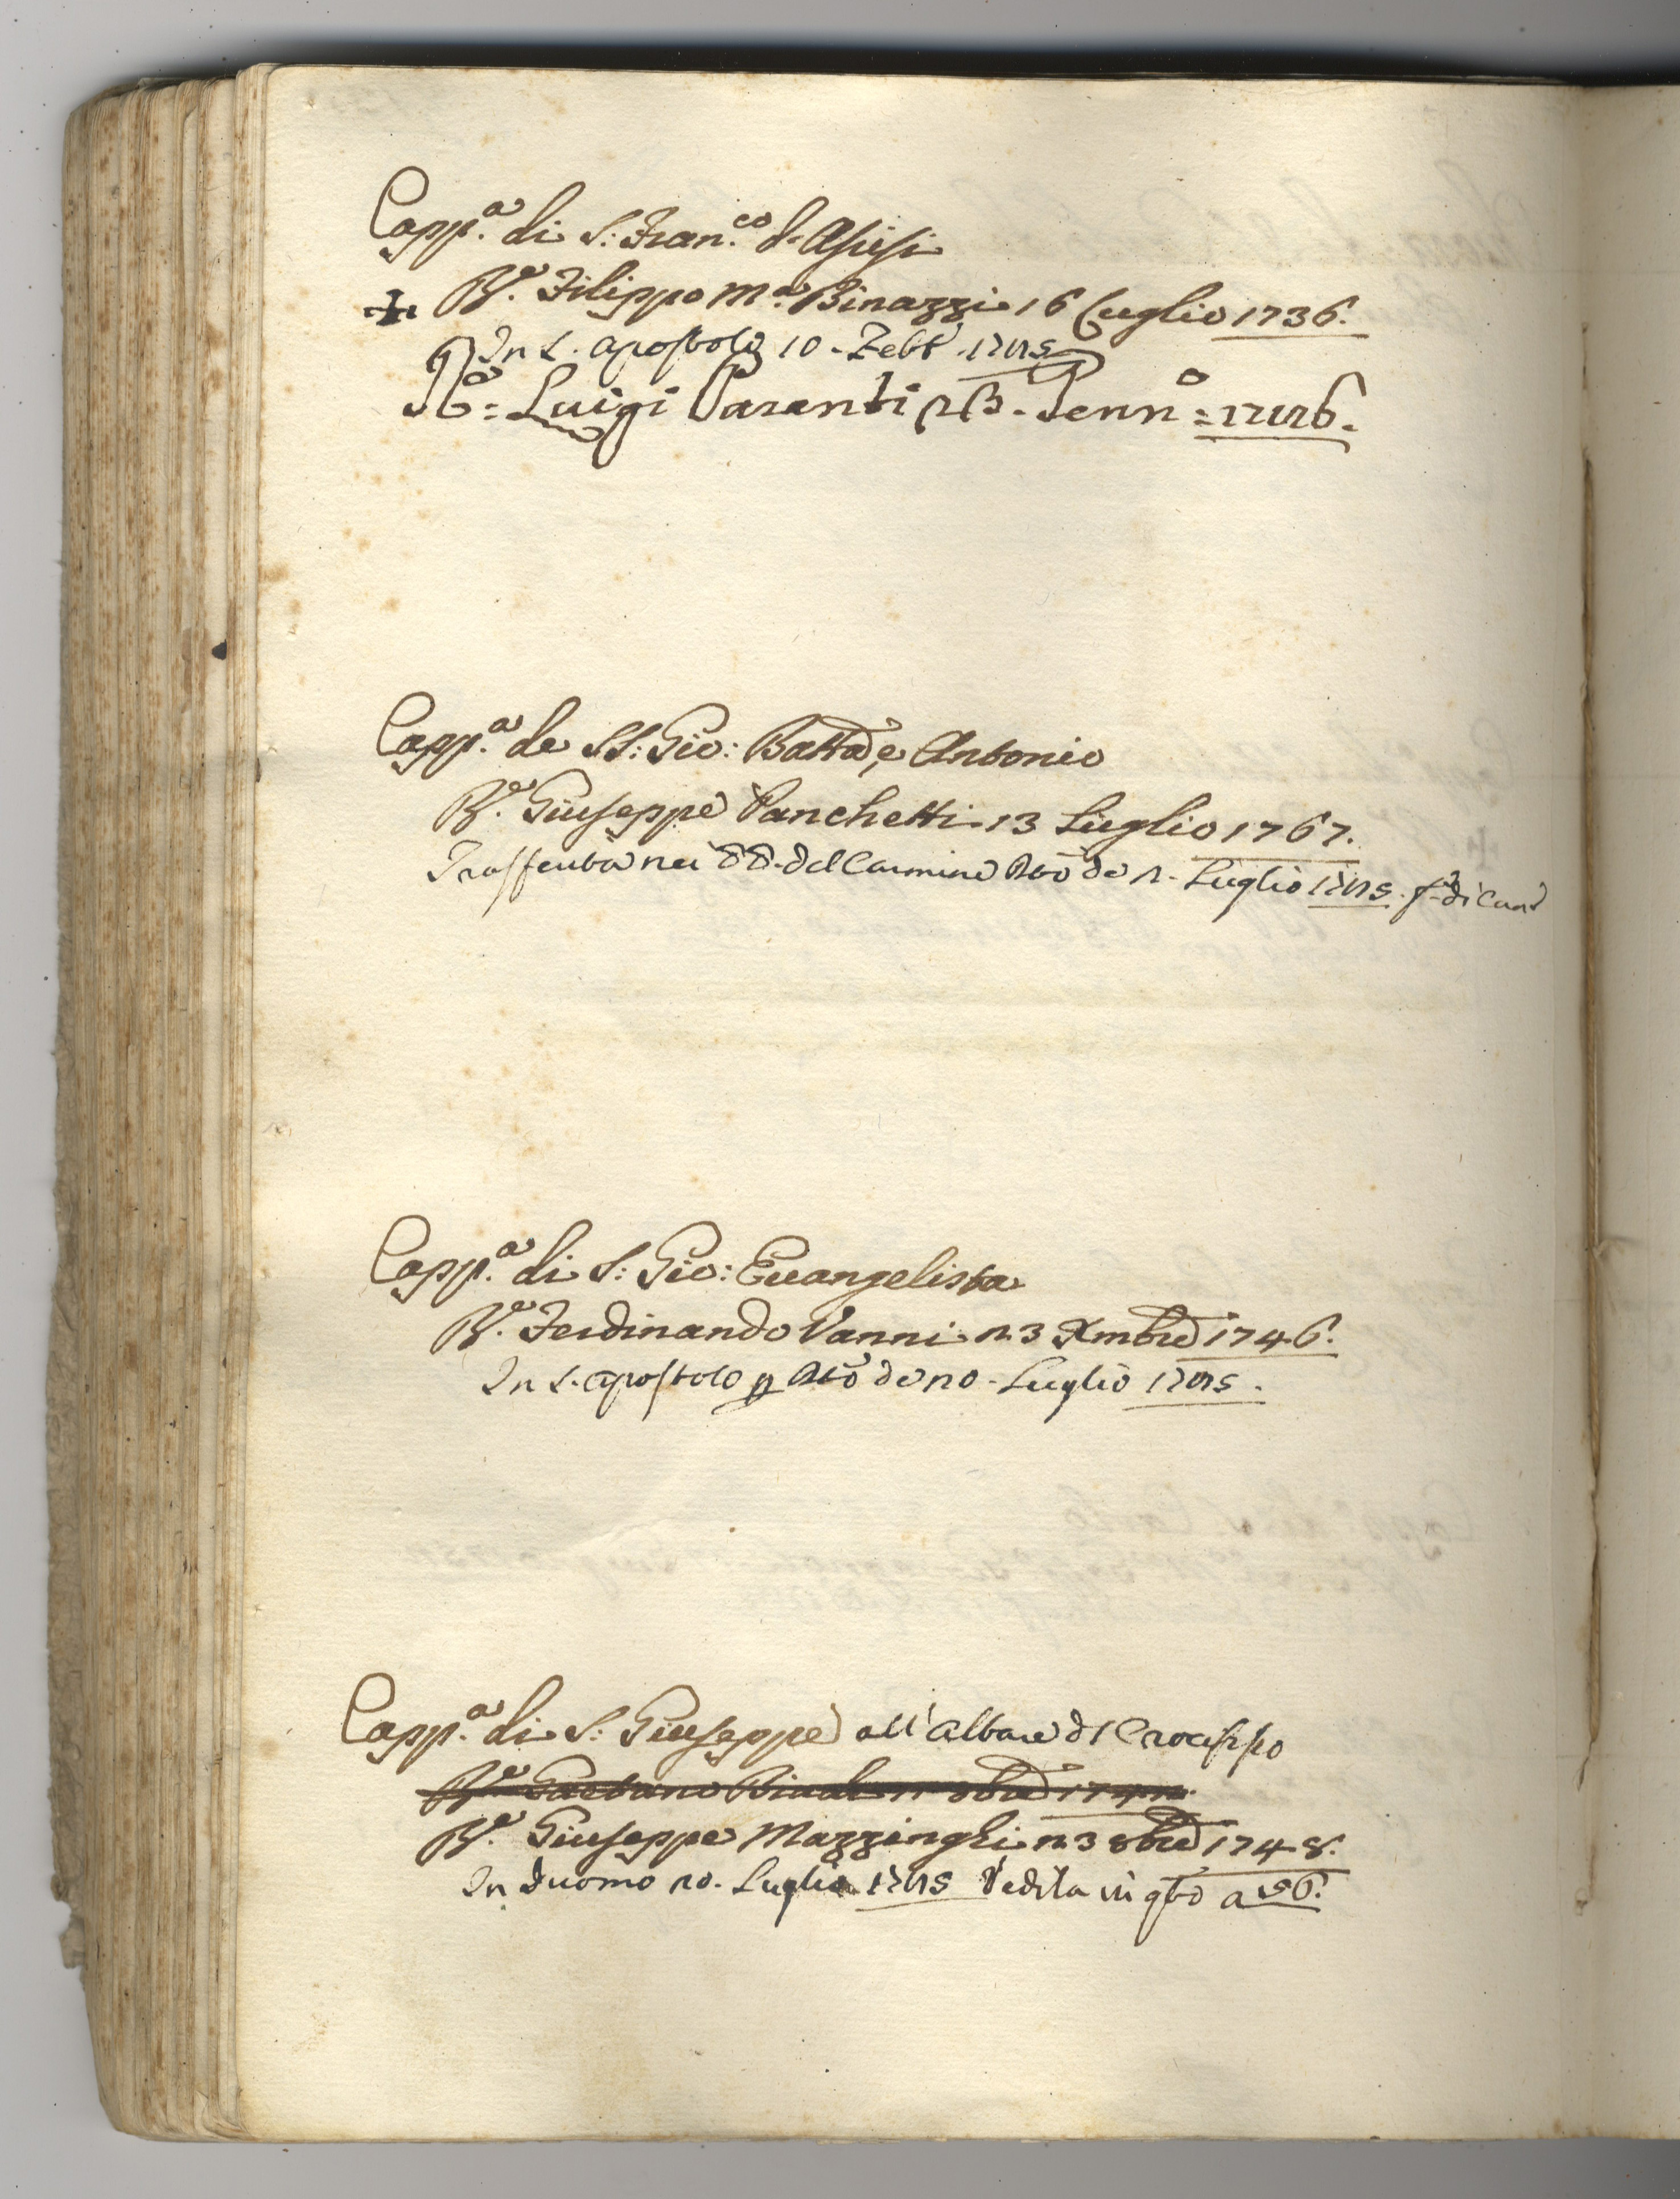 Capp.a di S: Fran.co d'Asisi
Re. Filippo Ma. Binazzi 16 Luglio 1736.
In S. Apostolo 10. Febb. 1785
Re: Luigi Parenti 23. Genno: 1786.
Capp.a de SS: Gio: Batta, e Antonio
Re. Giuseppe Panchetti 13 Luglio 1767.
Trasferita nei PP. del Carmine Atto de 2. Luglio 1785.
Capp.a di S: Gio: Euangelista
Re. Ferdinando Vanni 23 Xmbre 1746.
In S. Apostolo p Atto de 20. Luglio 1785.
Capp.a di S: Giuseppe all'Altare dl Crocifisso
Re. Gaetano 8bre 174
Re. Giuseppe Mazzinghi 23 8bre 1748.
In Duomo 20. Luglio 1785 Vedila in qto a 56.